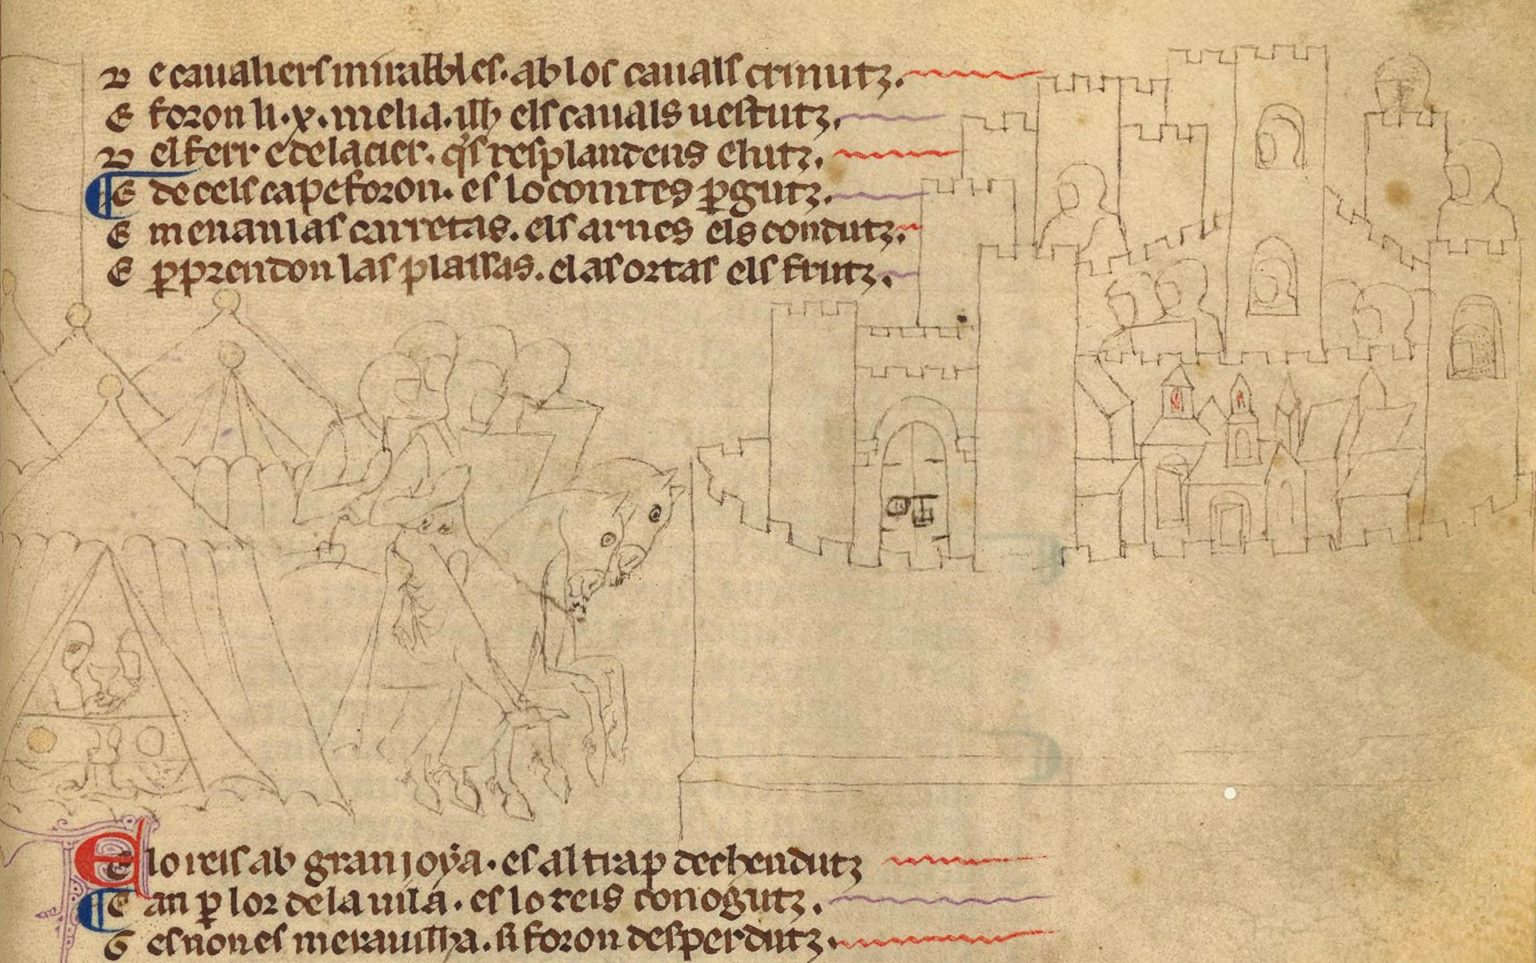 D e caualiers mirabbles. ab los cauals crinutz.
E foron li .x. melia. ilh els cauals uestutz.
D el ferr e delacier. qˢ resplandens e lutz.
E de cels cap e foron. es lo comtes pgutz.
E menan las carretas. els arnes els condutz.
E pprendon las plassas. e las ortas els frutz.
E lo reis ab gran ioya. es al trap dechendutz
E an p lor de la uila. es lo reis conogutz.
G es non es merauilha. si foron desperdutz.